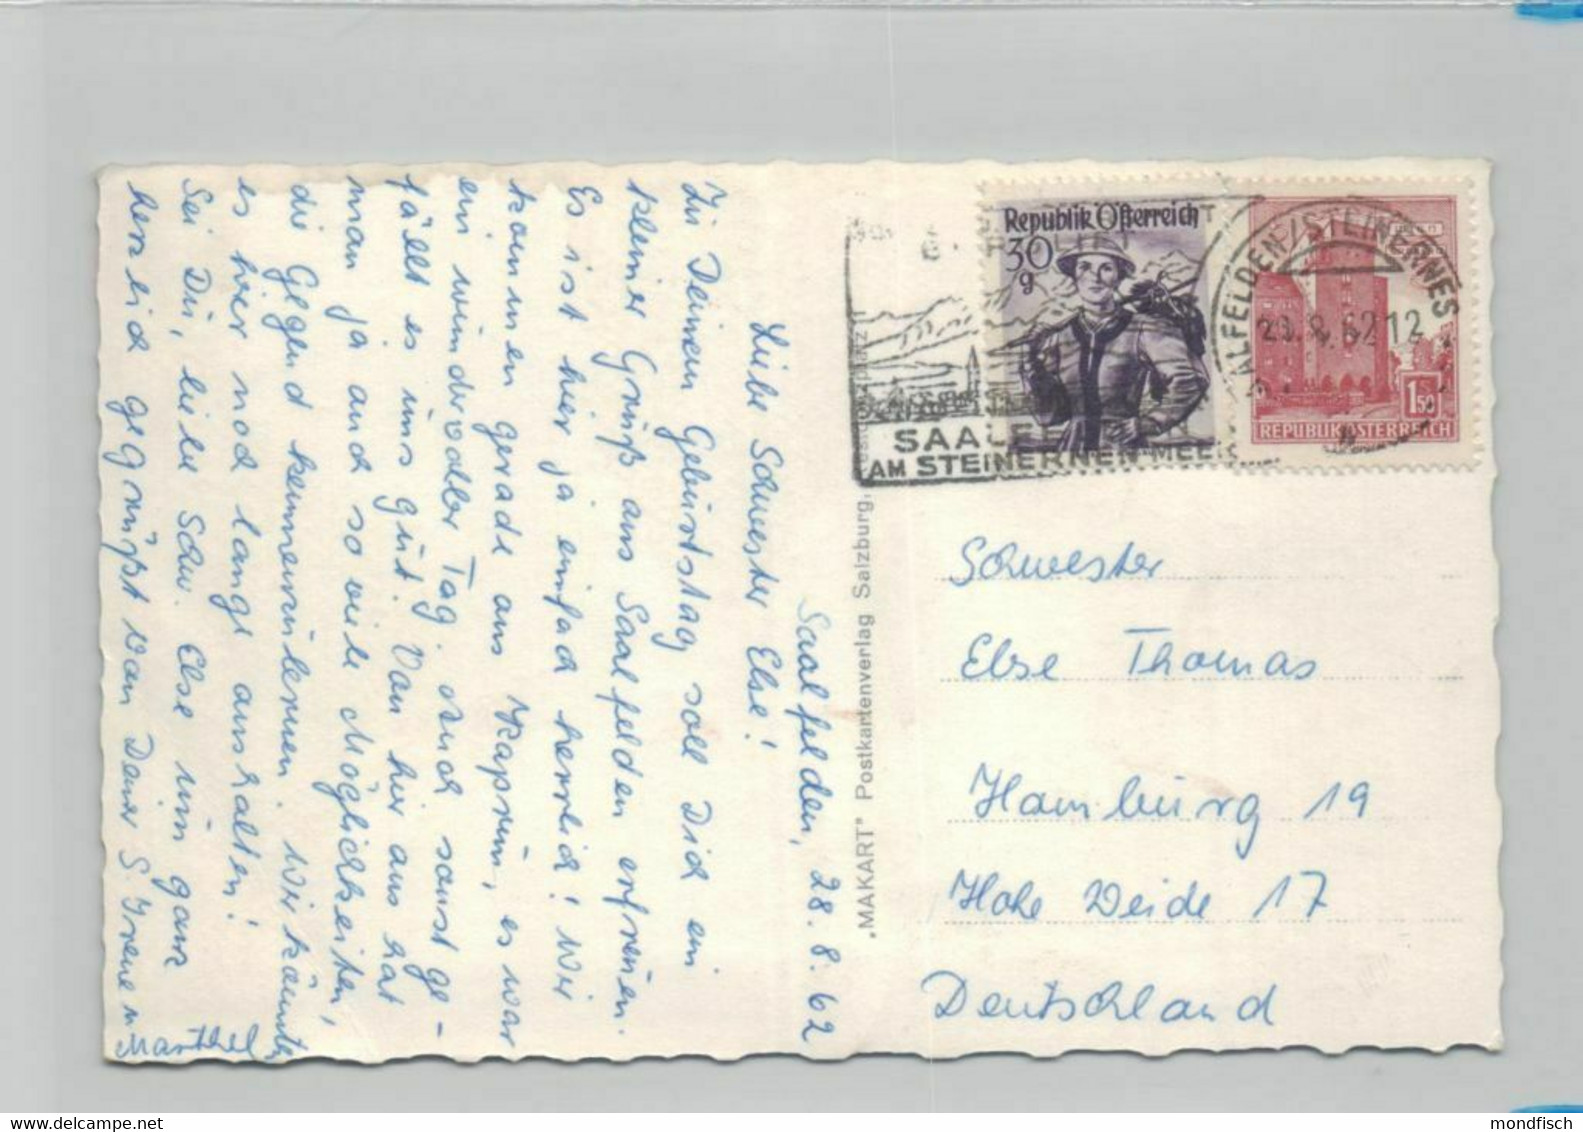 Saalfelden, 28.8.62
Liebe Schwester Else!
Zu Deinem Geburtstag soll Dich ein
kleiner Gruß aus Saalfelden erfreuen.
Es ist hier ja einfach herrlich! Wir
kommen gerade aus Kaprun, es war
ein wundervoller Tag. Auch sonst ge-
fällt es uns gut. Von hier aus hat
man ja auch so viele Möglichkeiten,
die Gegend kennenzulernen. Wir könnten
es hier noch lange aushalten!
Sei Du, liebe Schw. Else nun ganz
herzlich gegrüßt von Deiner S Irene u
Marthel
"MAKART" Postkartenverlag Salzburg,
Republik Österreich
30
g
SAALFELDEN
AM STEINERNEN MEER
SAALFELDEN/STEINERNES
29.8.62 12
1.50
REPUBLIK ÖSTERREICH
Schwester
Else Thomas
Hamburg 19
Hohe Weide 17
Deutschland
www.delcampe.net
mondfisch